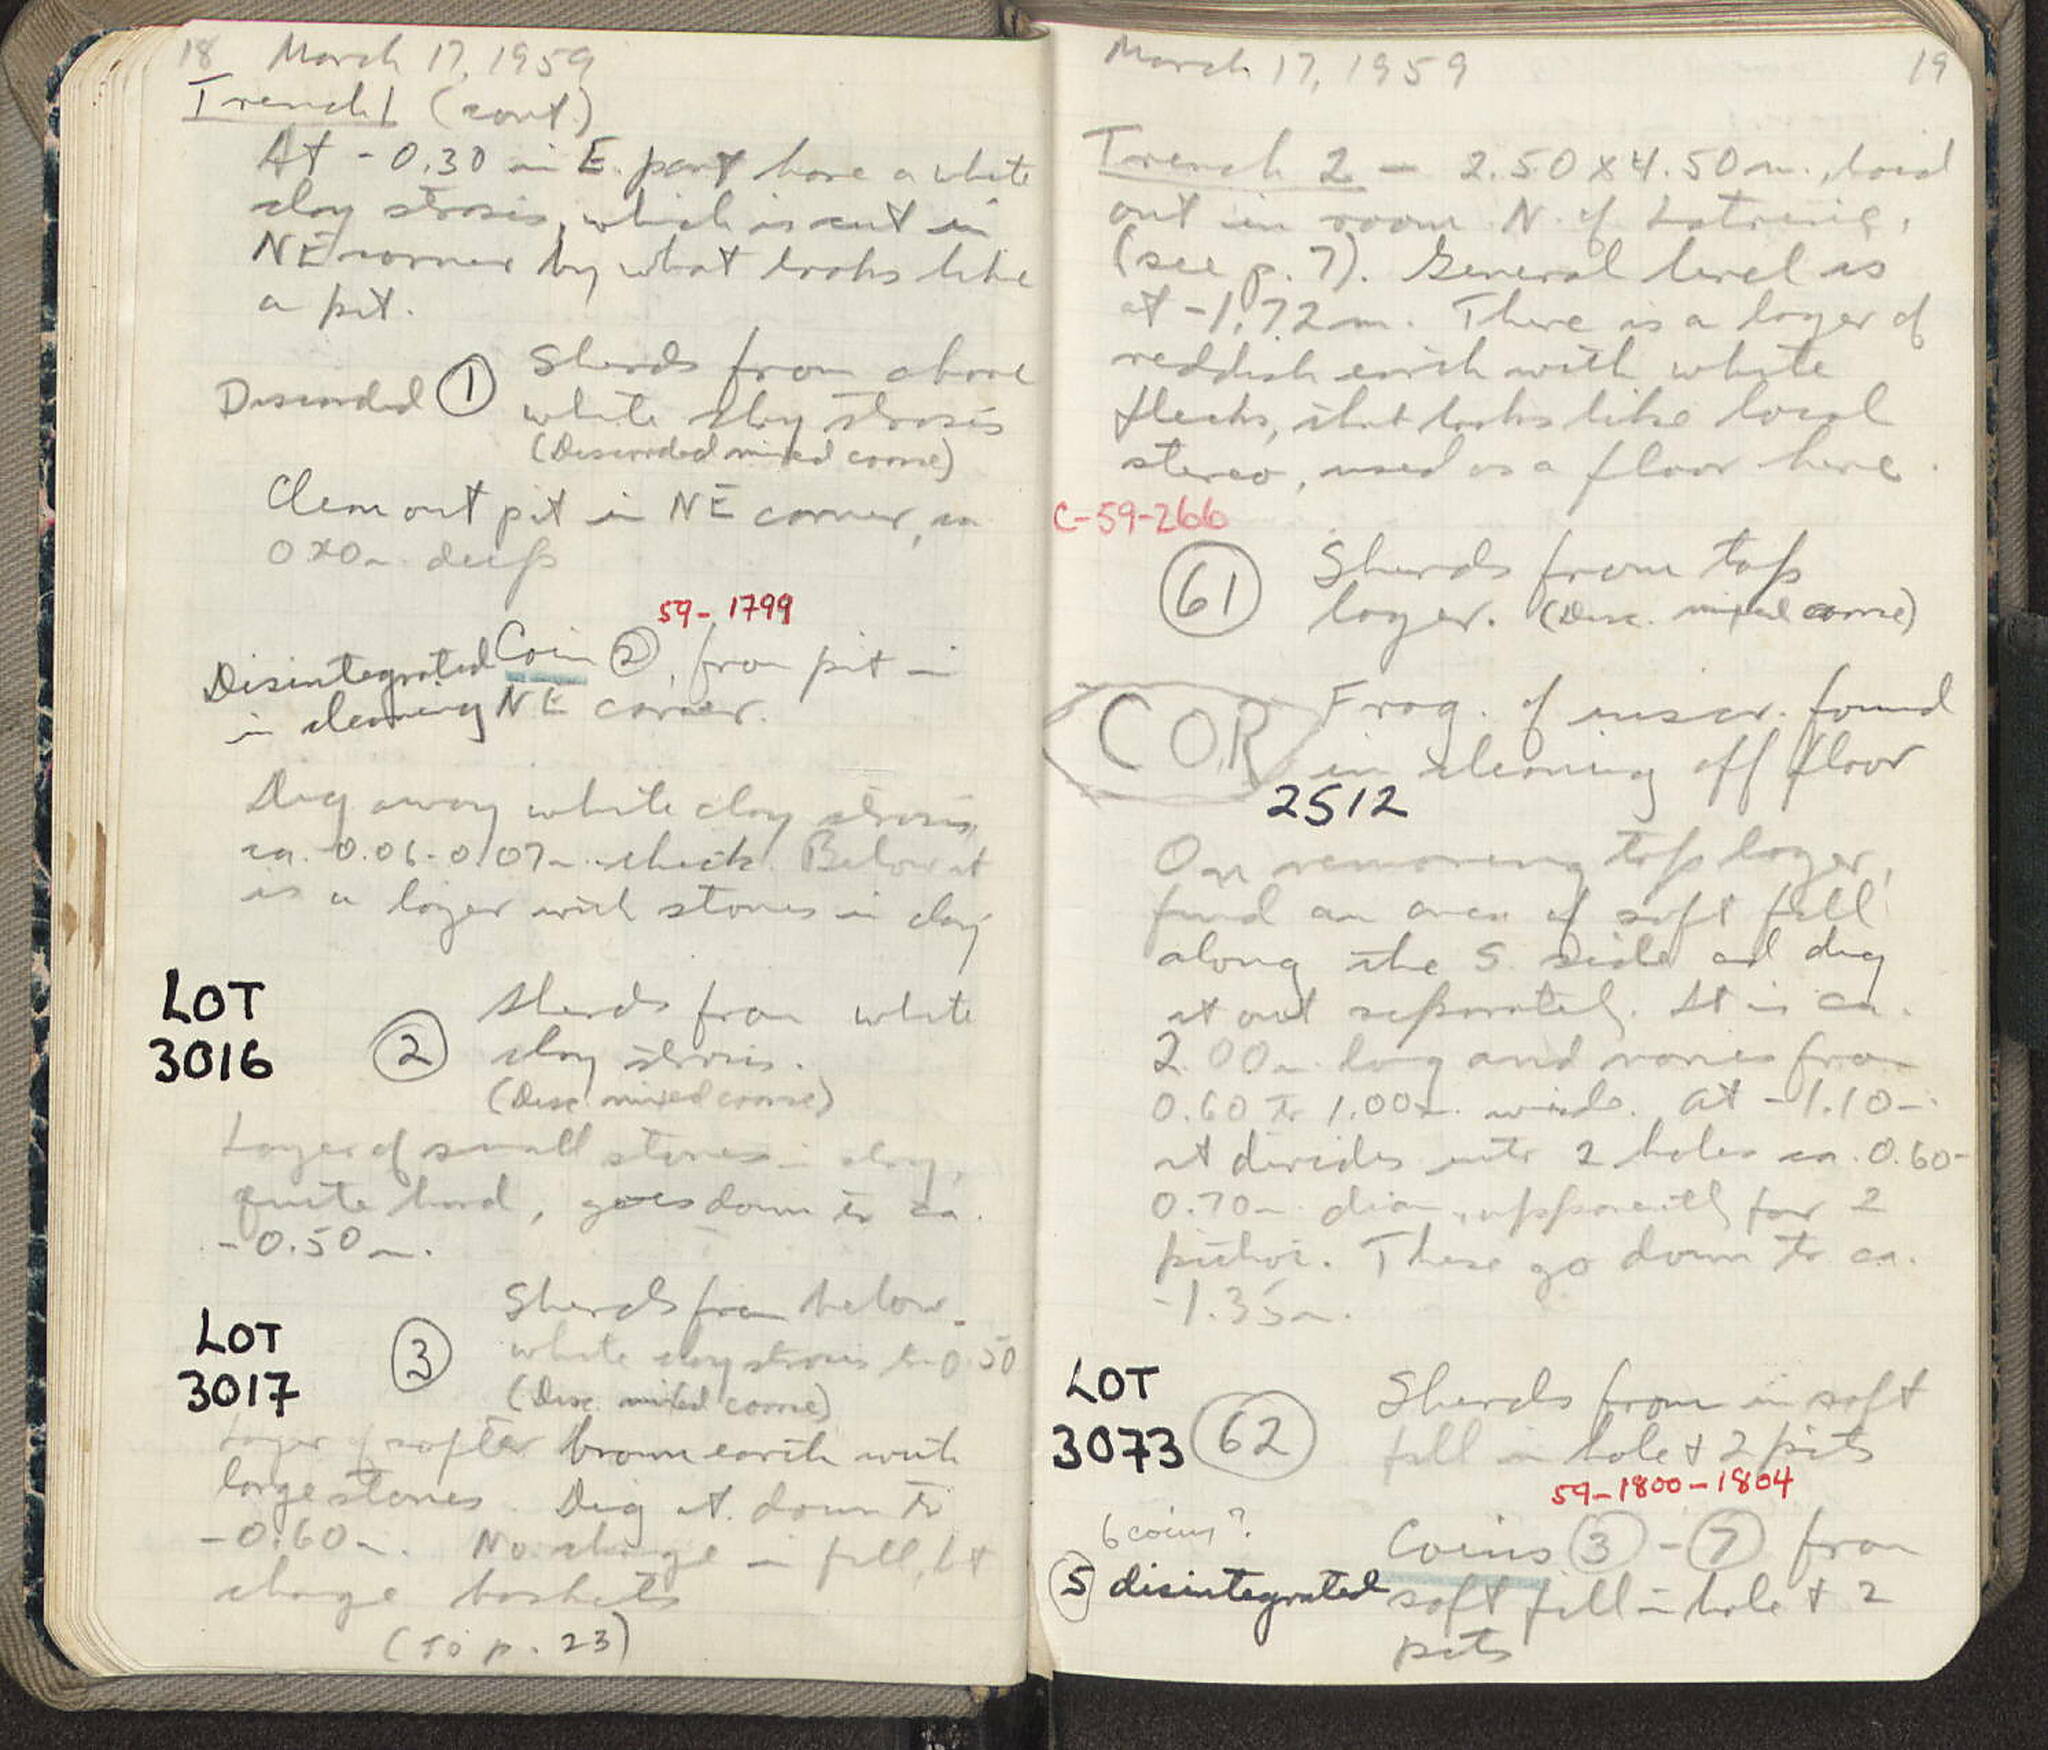 18 March 17, 1959
Trench 1 (cont.)
At -0.30 in E. part have a white
clay strosis, which is cut in
NE corner by what looks like
a pit.
Discarded ① Sherds from above
white clay strosis
(Discarded mixed coarse)
Clean out pit in NE corner, ca
deep
59-1799
Disintegrated Coin ②, from pit in
in cleaning NE corner.
Dig away white clay strosis,
ca. 0.06-0.07m. thick. Below it
is a layer with stones in clay
LOT
3016
② Sherds from white
clay strosis.
(Disc. mixed coarse)
Layer of small stones in clay,
quite hard, goes down to ca.
-0.50m.
LOT
3017
③ Sherds from below
white clay strosis to -0.50
(Disc. mixed coarse)
Layer of softer brown earth with
large stones. Dig it down to
-0.60m. No change in fill, but
change baskets
(to p. 23)
March 17, 1959 19
Trench 2 - 2.50 x 4.50m., laid
out in room N. of Latrine,
(see p. 7). General level is
at -1.72m. There is a layer of
reddish earth with white
flecks, that looks like local
stereo, used as a floor here.
C-59-266
61 Sherds from top
layer. (Disc. mixed coarse)
COR Frag. of inscr. found
in cleaning off floor
2512
On removing top layer,
find an area of soft fill
along the S. side and dig
it out separately. It is ca.
2.00m. long and varies from
0.60 to 1.00m. wide. At -1.10m.
it divides into 2 holes ca. 0.60-
0.70m. diam., apparently for 2
pithoi. These go down to ca.
-1.35m.
LOT
3073
62 Sherds from in soft
fill in hole + 2 pits
59-1800-1804
6 coins?
Coins ③-⑦ from
⑤ disintegrated soft fill in hole + 2
pits